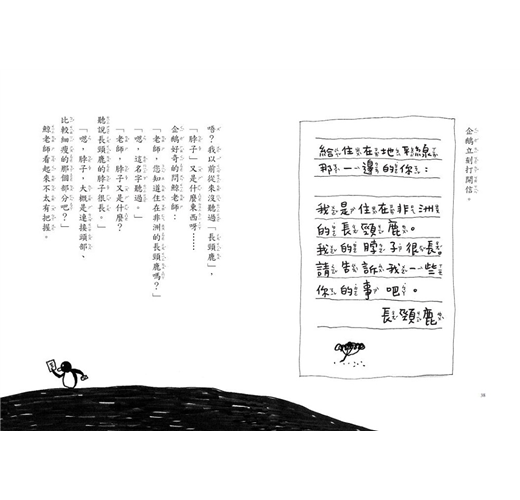 企鵝立刻打開信。
給住在地平線
那一邊的你：
我是住在非洲
的長頸鹿。
我的脖子很長。
請告訴我一些
你的事吧。
長頸鹿
38
唔？我以前從來沒聽過「長頸鹿」，
「脖子」又是什麼東西呀……
企鵝好奇的問鯨老師：
「老師，您知道住在非洲的長頸鹿嗎？」
「嗯，這名字聽過。」
「老師，脖子又是什麼？
聽說長頸鹿的脖子很長。」
「嗯，脖子，大概是連接頭部、
比較細瘦的那個部分吧？」
鯨老師看起來不太有把握。